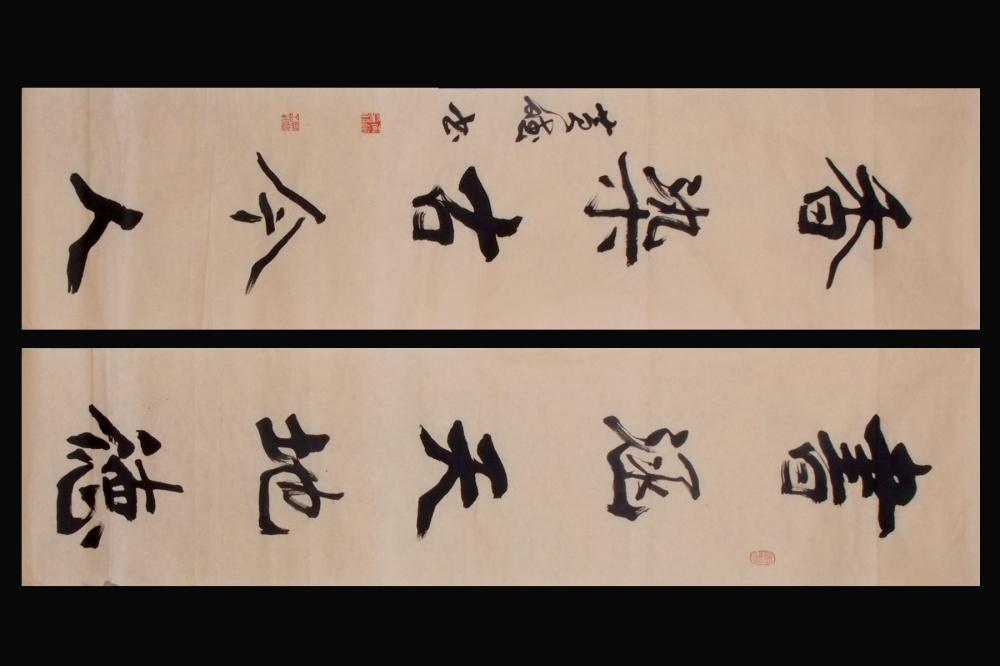 書涵天地德
香染古今人
书